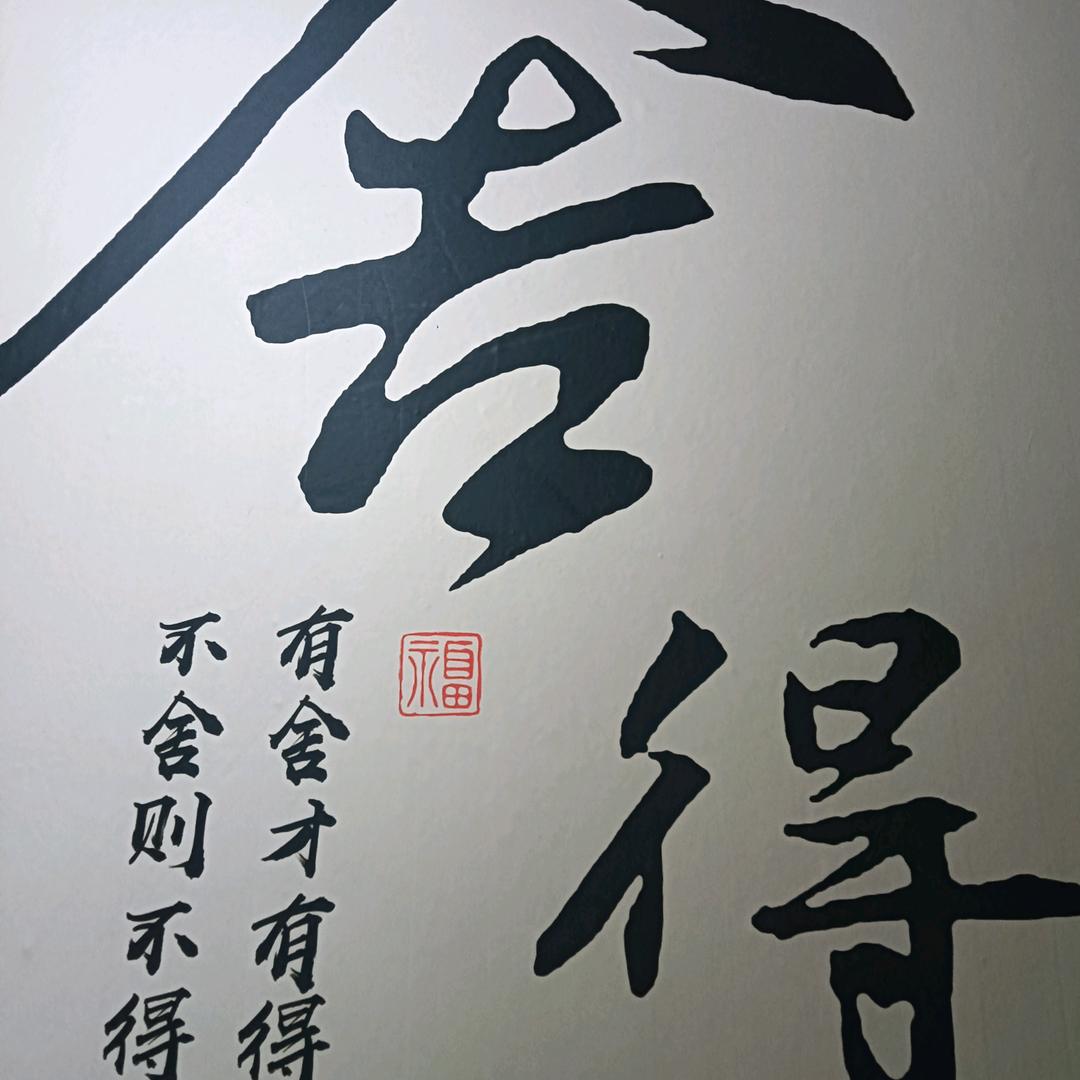 舍
得
福
有舍才有得
不舍则不得